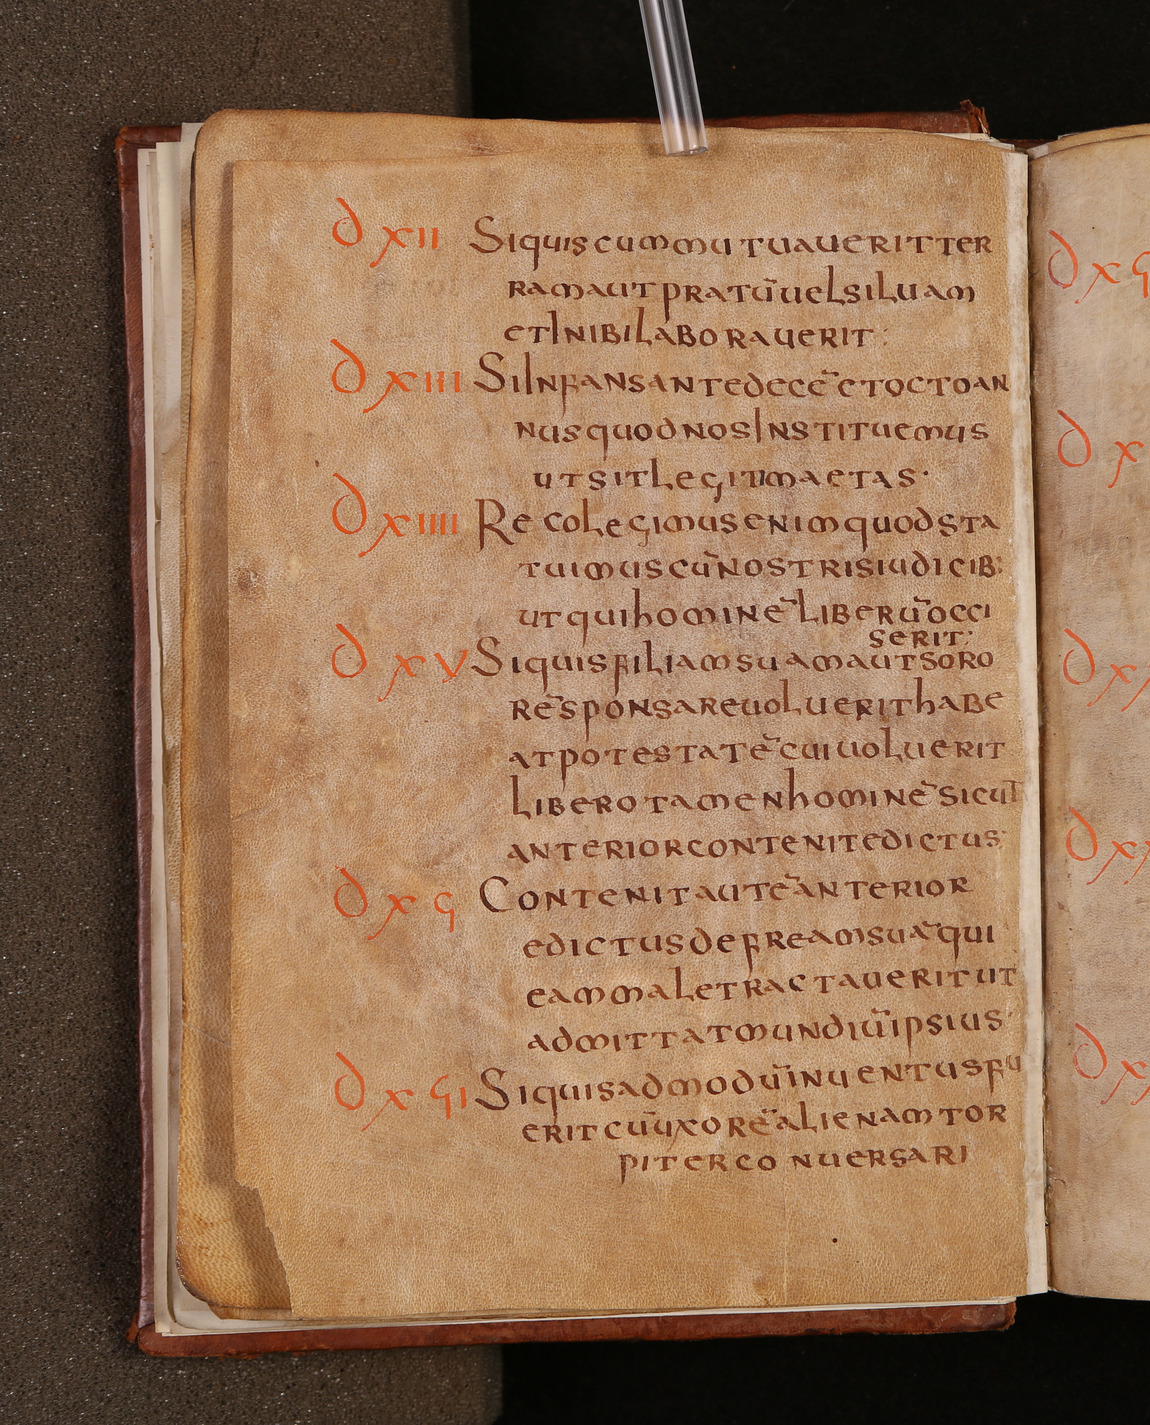 d xii Siquiscummutuaueritter
ramautpratūuelsiluam
etinibilaborauerit:
d xiii Siinfansantedecēetoctoan
nusquodnosinstituemus
utsitlegitimaetas·
d xiiii Recolegimusenimquodsta
tuimuscūnostrisiudicib:
utquihominēliberūocci
serit:
d xv Siquisfiliamsuamautsoro
rēsponsareuoluerithabe
atpotestatēcuiuoluerit
liberotamenhominēsicut
anteriorcontenitedictus·
d xϛ Contenitautēanterior
edictusdefreamsuāqui
eammaletractaueritut
admittatmundiūipsius·
d xϛi Siquisadmodūinuentusfu
eritcūuxorēalienamtor
piterconuersari
d xϛ
d x
d xx
d xx
d xx